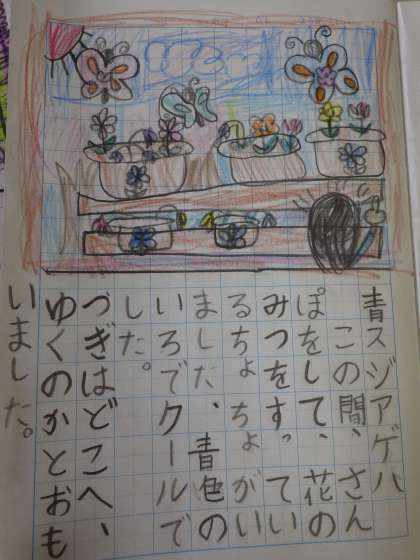 青スジアゲハ
この間、さん
ぽをして、花の
みつをすってい
るちょちょがい
ました、青色の
いろでクールで
した。
づぎはどこへ、
ゆくのかとおも
いました。